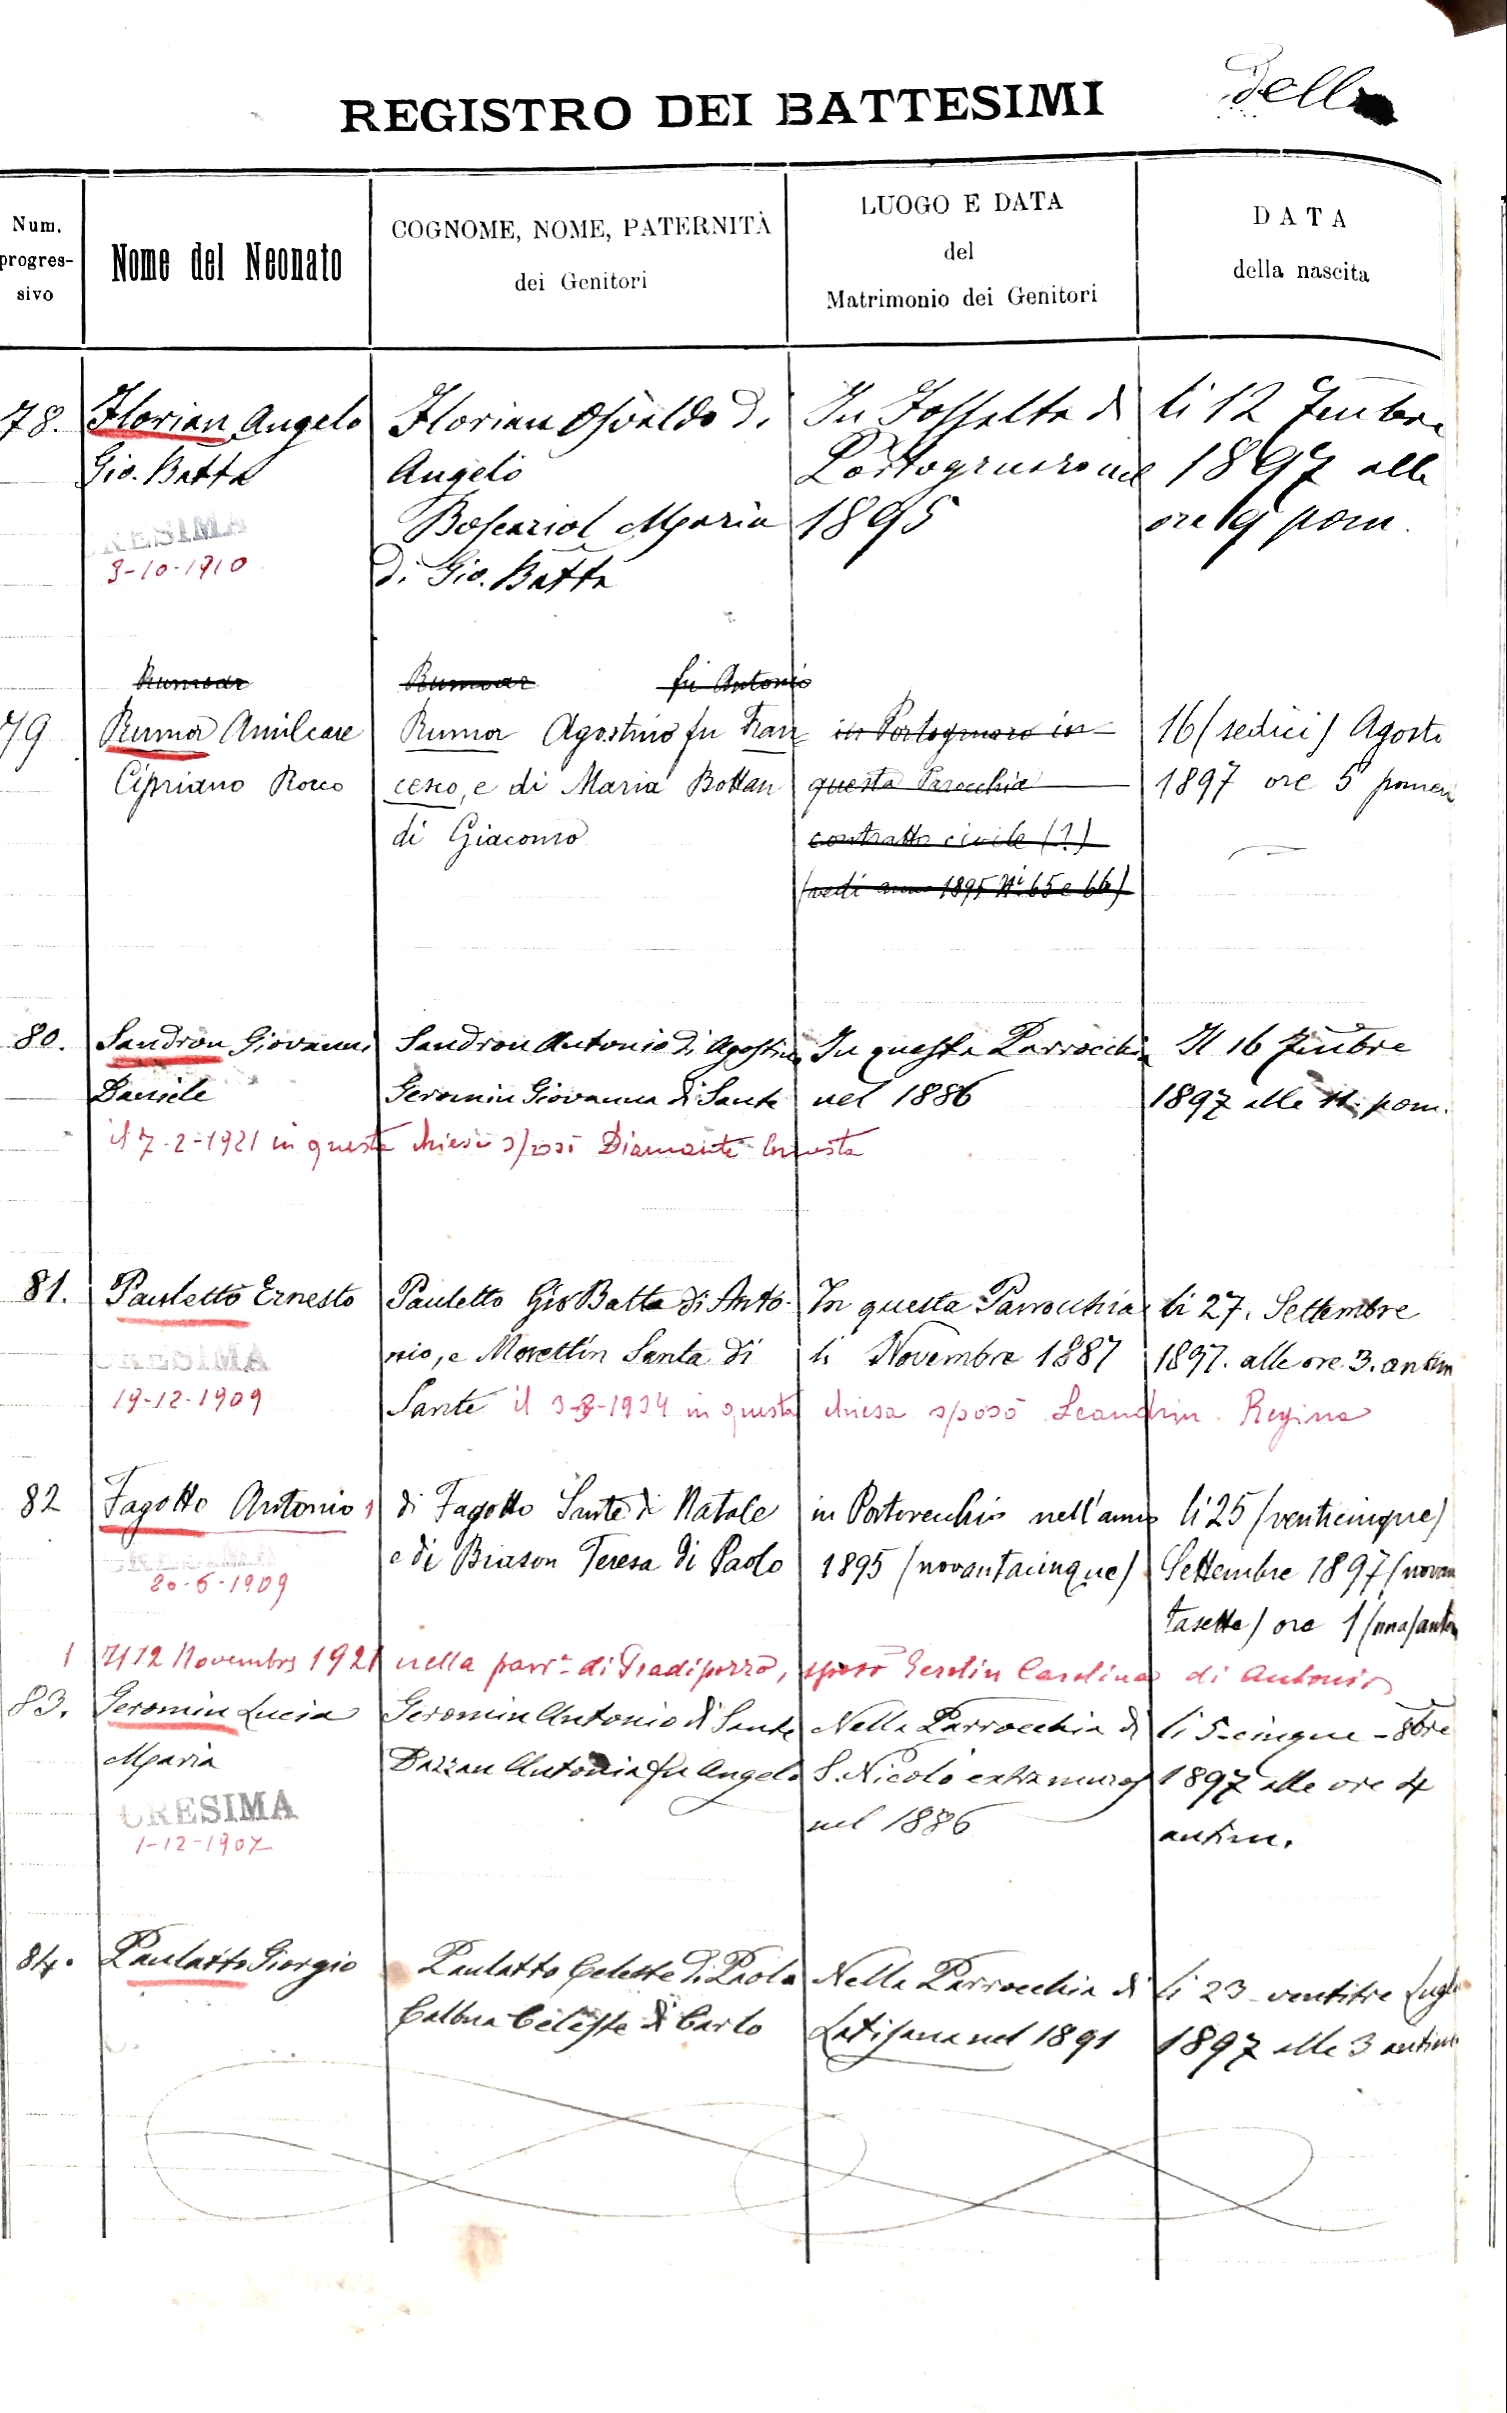 REGISTRO DEI BATTESIMI
Dell
Num.
progres-
sivo
Nome del Neonato
COGNOME, NOME, PATERNITÀ
dei Genitori
LUOGO E DATA
del
Matrimonio dei Genitori
DATA
della nascita
78.
Florian Angelo
Gio. Batta
CRESIMA
9-10-1910
Florian Osvaldo di
Angelo
Boscariol Maria
di Gio. Batta
In Fossalta di
Portogruaro nel
1895
li 12 7mbre
1897 alle
ore 9 pom.
79
Rumor Amilcare
Cipriano Rocco
fu Antonio
Rumor Agostino fu Fran
cesco, e di Maria Bottan
di Giacomo
in Portogruaro in
questa Parocchia
contratto civile (?)
(vedi anno 1895 Ni 65 e 66)
16 (sedici) Agosto
1897 ore 5 pomeri
80.
Sandron Giovanni
Daniele
Sandron Antonio di Agostino
Geromin Giovanna di Sante
In questa Parrocchia
nel 1886
Il 16 7mbre
1897 alle 11. pom.
il 7-2-1921 in questa chiesa sposò Diamante
81.
Pauletto Ernesto
CRESIMA
19-12-1909
Pauletto Gio Batta di Anto-
nio, e Morettin Santa di
Sante
In questa Parrocchia
li Novembre 1887
li 27. Settembre
1897. alle ore 3. antim
il 3-3-1934 in questa chiesa sposò Leandrin Regina
82
Fagotto Antonio 1
CRESIMA
20-6-1909
di Fagotto Sante di Natale
e di Biason Teresa di Paolo
in Portovecchio nell'anno
1895 (novantacinque)
li 25 (venticinque)
Settembre 1897 (novan
tasette) ore 1 (una) antim
1 Il 12 Novembre 1921 nella parr. di Gradipozzo, sposò Gerolin Carolina di Antonio
83.
Geromin Lucia
Maria
CRESIMA
1-12-1907
Geromin Antonio di Sante
Dazzan Antonia fu Angelo
Nella Parrocchia di
S. Nicolò extra muros
nel 1886
li 5-cinque-8bre
1897 alle ore 4
antim.
84.
Paulatto Giorgio
Paulatto Celeste di Paolo
Calona Celeste di Carlo
Nella Parrocchia di
Latisana nel 1891
li 23 ventitre Lugli
1897 alle 3 antim